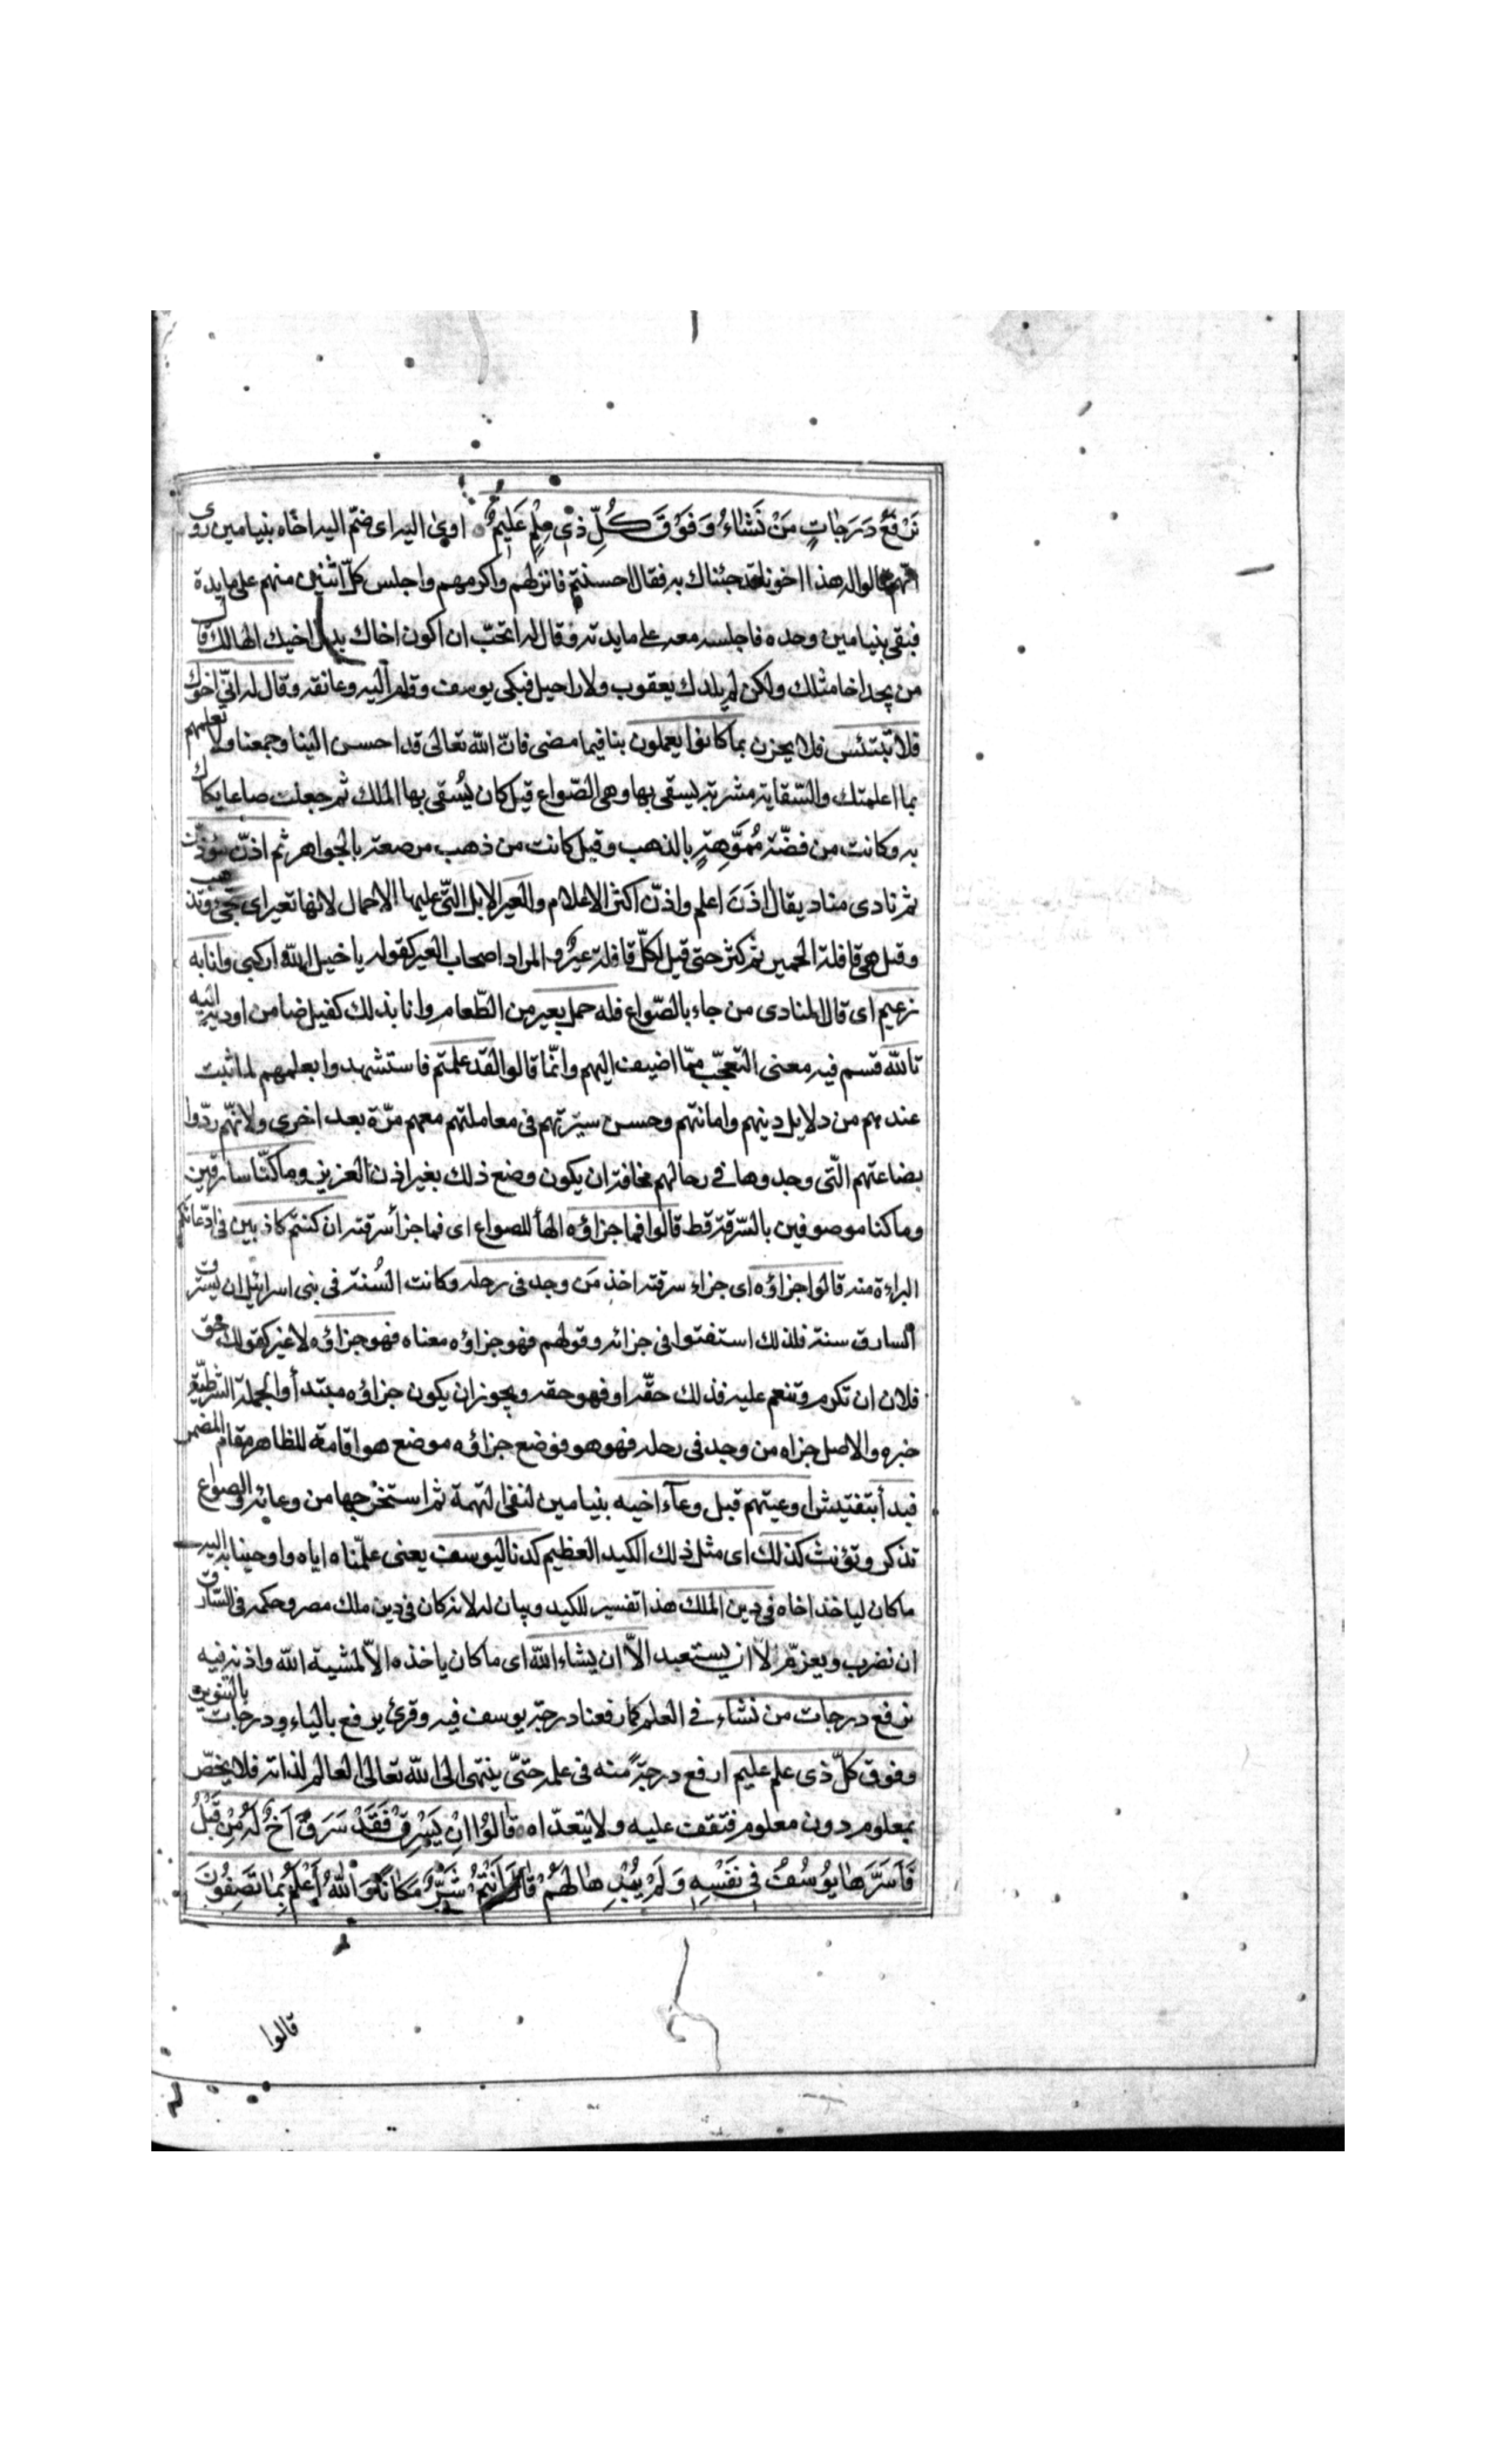 نَرْفَعُ دَرَجَاتٍ مَنْ نَشَاءُ وَفَوْقَ كُلِّ ذِي عِلْمٍ عَلِيمٌ اوى اليه اى ضمّ اليه اخاه بنيامين روى
انّهم قالوا له هذا اخونا قد جئناك به فقال احسنتم فانزلهم واكرمهم واجلس كلّ اثنين منهم على مايدة
فبقى بنيامين وحده فاجلسه معه على مايدته وقال له اتحبّ ان اكون اخاك بدل اخيك الهالك قال
من يجد اخا مثلك ولكن لم يلدك يعقوب ولا راحيل فبكى يوسف وقام اليه وعانقه وقال له انّى اخوك
فلا تبتئس فلا يحزن بما كانوا يعملون بنا فيما مضى فانّ اللّه تعالى قد احسن الينا وجمعنا ولا تعلمهم
بما اعلمتك والسّقاية مشربة يسقى بها وهى الصّواع قيل كان يُسقى بها الملك ثم جعلت صاعا يكال
به وكانت من فضّة مُمَوَّهةٍ بالذهب وقيل كانت من ذهب مرصعة بالجواهر ثم اذّن مؤذّن
ثم نادى مناد يقال اذَنَ اعلم واذّن اكثر الاعلام والعير الابل التّى عليها الاحمال لانها تعير اى تجئ وتذهب
وقيل هى قافلة الحمير ثم كثر حتى قيل لكلّ قافلة عيرٌ والمراد اصحاب العير كقوله يا خيل اللّه اركبى وانا به
زعيم اى قال المنادى من جاء بالصّواع فله حمل بعير من الطّعام وانا بذلك كفيل ضامن اوديه اليه
تاللّه قسم فيه معنى التعجّب ممّا اضيف اليهم وانّما قالوا لقد علمتم فاستشهدوا بعلمهم لما ثبت
عندهم من دلايل دينهم وامانتهم وحسن سيرتهم فى معاملتهم معهم مرّة بعد اخرى ولانّهم ردّوا
بضاعتهم الّتى وجدوها فى رحالهم مخافة ان يكون وضع ذلك بغير اذن العزيز وما كنّا سارقين
وما كنا موصوفين بالسّرقة قط قالوا فما جزاؤه الهأ للصواع اى فما جزأ سرقته ان كنتم كاذبين فى ادّعائكم
البراءة منه قالوا جزاؤه اى جزاء سرقته اخذ مَن وجد فى رحله وكانت السُنة فى بنى اسرائيل ان يسترق
السارق سنة فلذلك استفتوا فى جزائه وقولهم فهو جزاؤه معناه فهو جزاؤه لا غير كقولك حق
فلان ان تكرم وتنعم عليه فذلك حقّه او فهو حقه ويجوز ان يكون جزاؤه مبتدأ والجملة الشرطيّة
خبره والاصل جزاه من وجد فى رحله فهو هو فوضع جزاؤه موضع هو اقامة للظاهر مقام المضمر
فبدأ بتفتيش اوعيتهم قبل وعآء اخيه بنيامين لنفى التهمة ثم استخرجها من وعائه والصواع
تذكر وتؤنث كذلك اى مثل ذلك الكيد العظيم كدنا ليوسف يعنى علّمناه اياه واوحينا به اليه
ما كان لياخذ اخاه فى دين الملك هذا تفسير للكيد وبيان له لانه كان فى دين ملك مصر وحكمه فى السّارق
ان نضرب ويعزّم لا ان يستعبد الاّ ان يشاء اللّه اى ما كان ياخذه الاّ لمشية اللّه واذنه فيه
نرفع درجات من نشاء فى العلم كما رفعنا درجة يوسف فيه وقرئ يرفع بالياء ودرجات بالتنوين
وفوق كلّ ذى علم عليم ارفع درجةً منه فى علمه حتىّ ينتهى الى اللّه تعالى العالم لذاته فلا يختصّ
بمعلوم دون معلوم فتقف عليه ولا يتعدّاه قَالُوا اِنْ يَسْرِقْ فَقَدْ سَرَقَ اَخٌ لَهُ مِنْ قَبْلُ
فَاَسَرَّهَا يُوسُفُ فِى نَفْسِهِ وَلَمْ يُبْدِهَا لَهُمْ قَالَ اَنْتُمْ شَرٌّ مَكَانًا وَاللّٰهُ اَعْلَمُ بِمَا تَصِفُونَ
قالوا